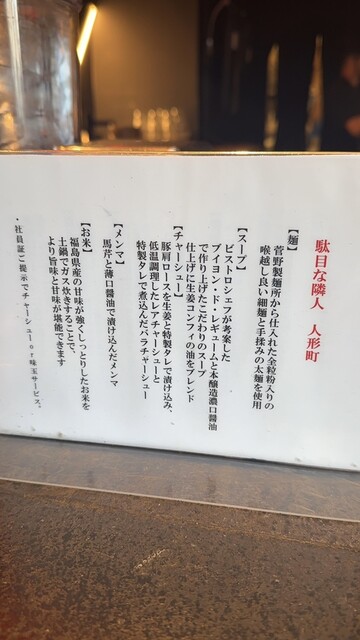 駄目な隣人　人形町
【麺】
菅野製麺所から仕入れた全粒粉入りの
喉越し良い細麺と手揉みの太麺を使用
【スープ】
ビストロシェフが考案した
ブイヨン・ド・レギュームと本醸造濃口醤油
で作り上げたこだわりのスープ
仕上げに生姜コンフィの油をブレンド
【チャーシュー】
豚肩ロースを生姜と特製タレで漬け込み、
低温調理したレアチャーシューと
特製タレで煮込んだバラチャーシュー
【メンマ】
馬芹と薄口醤油で漬け込んだメンマ
【お米】
福島県産の甘味が強くしっとりしたお米を
土鍋でガス炊きすることで、
より旨味と甘味が堪能できます
・社員証ご提示でチャーシューor味玉サービス。